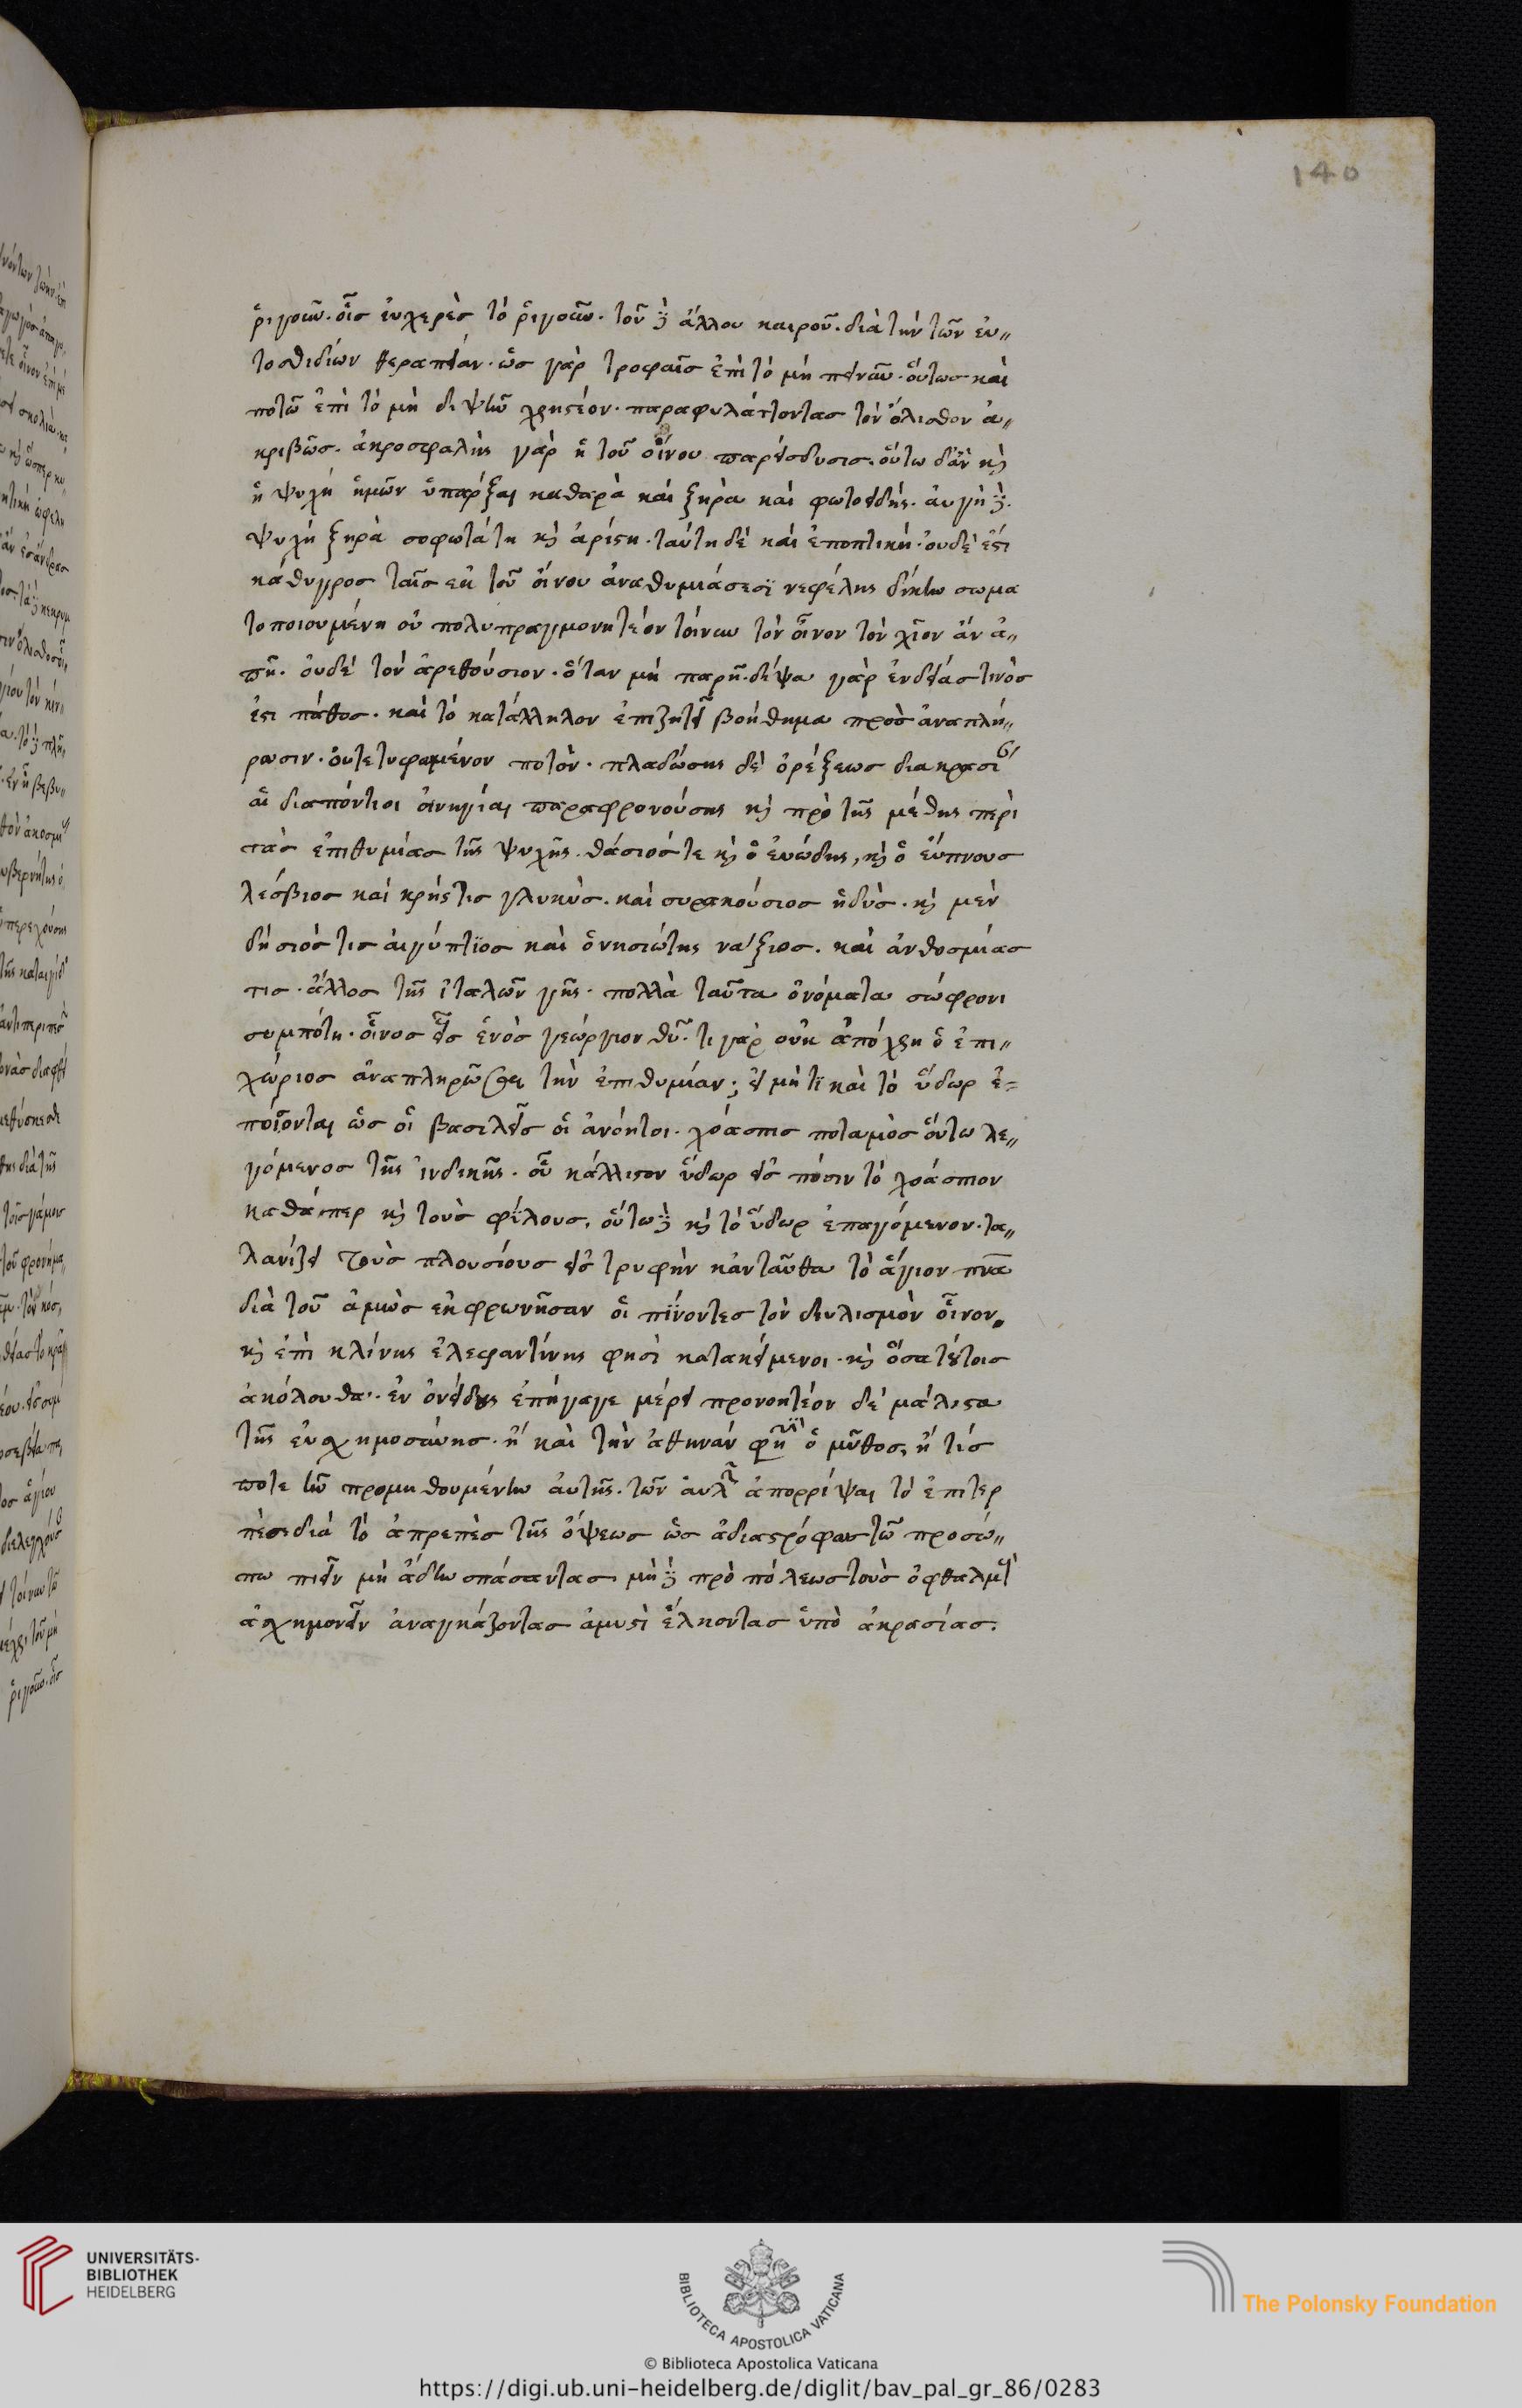 140
ῥιγοῦν. οἷς εὐχερὲς τὸ ῥιγοῦν. τοῦ δὲ ἄλλου καιροῦ. διὰ τὴν τῶν ἐν〃
τοσθιδίων θεραπείαν. ὡς γὰρ τροφαῖς ἐπὶ τὸ μὴ πεινᾶν. οὕτως καὶ
ποτῶ ἐπὶ τὸ μὴ διψῆν χρηστέον. παραφυλάττοντας τὸν ὄλισθον ἀ〃
κριβῶς. ἀκροσφαλὴς γὰρ ἡ τοῦ οἴνου παρείσδυσις. οὕτω δ' ἂν καὶ
ἡ ψυχὴ ἡμῶν ὑπάρξαι καθαρὰ καὶ ξηρὰ καὶ φωτοειδής. αὐγὴ δὲ.
ψυχὴ ξηρὰ σοφωτάτη καὶ ἀρίστη. ταύτη δὲ καὶ ἐποπτική. οὐδέ ἐστι
κάθυγρος ταῖς ἐκ τοῦ οἴνου ἀναθυμιάσεσϊ νεφέλης δίκην σωμα
τοποιουμένη οὐ πολυπραγμονητέον τοίνυν τὸν οἶνον τὸν χῖον ἂν ἀ〃
πῆ. οὐδὲ τὸν ἀρεθούσιον. ὅταν μὴ παρῆ. δίψα γὰρ ἐνδείας τινὸς
ἐστι πάθος. καὶ τὸ κατάλληλον ἐπιζητεῖ βοήθημα πρὸς ἀναπλή〃
ρωσιν. οὐ τετυφωμένον ποτὸν. πλαδώσης δὲ ὀρέξεως διακρασι
αἱ διαπόντιοι οἰνηγίαι παραφρονούσης καὶ πρὸ τῆς μέθης περὶ
τὰς ἐπιθυμίας τῆς ψυχῆς. θάσιός τε καὶ ὁ εὐώδης, καὶ ὁ εὔπνους
λέσβιος καὶ κρής τις γλυκὺς. καὶ συρακούσιος ἡδὺς. καὶ μεν
δήσιός τις αἰγύπτϊος καὶ ὁ νησιώτης νάξιος. καὶ ἀνθοσμίας
τις. ἄλλος τῆς ἰταλῶν γῆς. πολλὰ ταῦτα ὀνόματα σώφρονι
συμπότη. οἶνος εἷς ἑνὸς γεώργιον θῦ. τι γὰρ οὐκ ἀπόχρη ὁ ἐπι〃
χώριος ἀναπληρῶσαι τὴν ἐπιθυμίαν; εἰ μή τϊ καὶ τὸ ὕδωρ ἐ=
ποίονται ὡς οἱ βασιλεῖς οἱ ἀνόητοι. χοάσπις ποταμὸς οὕτω λε〃
γόμενος τῆς ἰνδικῆς. οὗ κάλλιστον ὕδωρ εἰς πόσιν τὸ χοάσπιον
καθάπερ καὶ τοὺς φίλους, οὕτω δὲ καὶ τὸ ὕδωρ ἐπαγόμενον. τα〃
λανίζει τοὺς πλουσίους εἰς τρυφὴν κἀνταῦθα τὸ ἅγιον πνᾶ
διὰ τοῦ ἀμὼς ἐκφρωνῆσαν οἱ πίνοντες τὸν διυλισμὸν οἶνον.
καὶ ἐπὶ κλίνης ἐλεφαντίνης φησὶ κατακείμενοι. καὶ ὅσα τούτοις
ἀκόλουθα. ἐν ὀνείδους ἐπήγαγε μέρει προνοητέον δὲ μάλιστα
τῆς εὐσχημοσύνης. ἧ καὶ τὴν ἀθηνᾶν φη ὁ μῦθος, ἥ τίς
ποτε ἦν προμηθουμένην αὐτῆς. τῶν αὐλ ἀπορρίψαι τὸ ἐπιτερ
πὲς διὰ τὸ ἀπρεπὲς τῆς ὄψεως ὡς ἀδιαστρόφως τῶ προσώ〃
πω πιεῖν μὴ ἄδην σπάσαντας μὴ δὲ πρὸ πόλεως τοὺς ὀφθαλμ
ἀσχημονεῖν ἀναγκάζοντας ἀμυστὶ ἕλκοντας ὑπὸ ἀκρασίας.
UNIVERSITÄTS-
BIBLIOTHEK
HEIDELBERG
BIBLIOTECA APOSTOLICA VATICANA
The Polonsky Foundation
© Biblioteca Apostolica Vaticana
https://digi.ub.uni-heidelberg.de/diglit/bav_pal_gr_86/0283